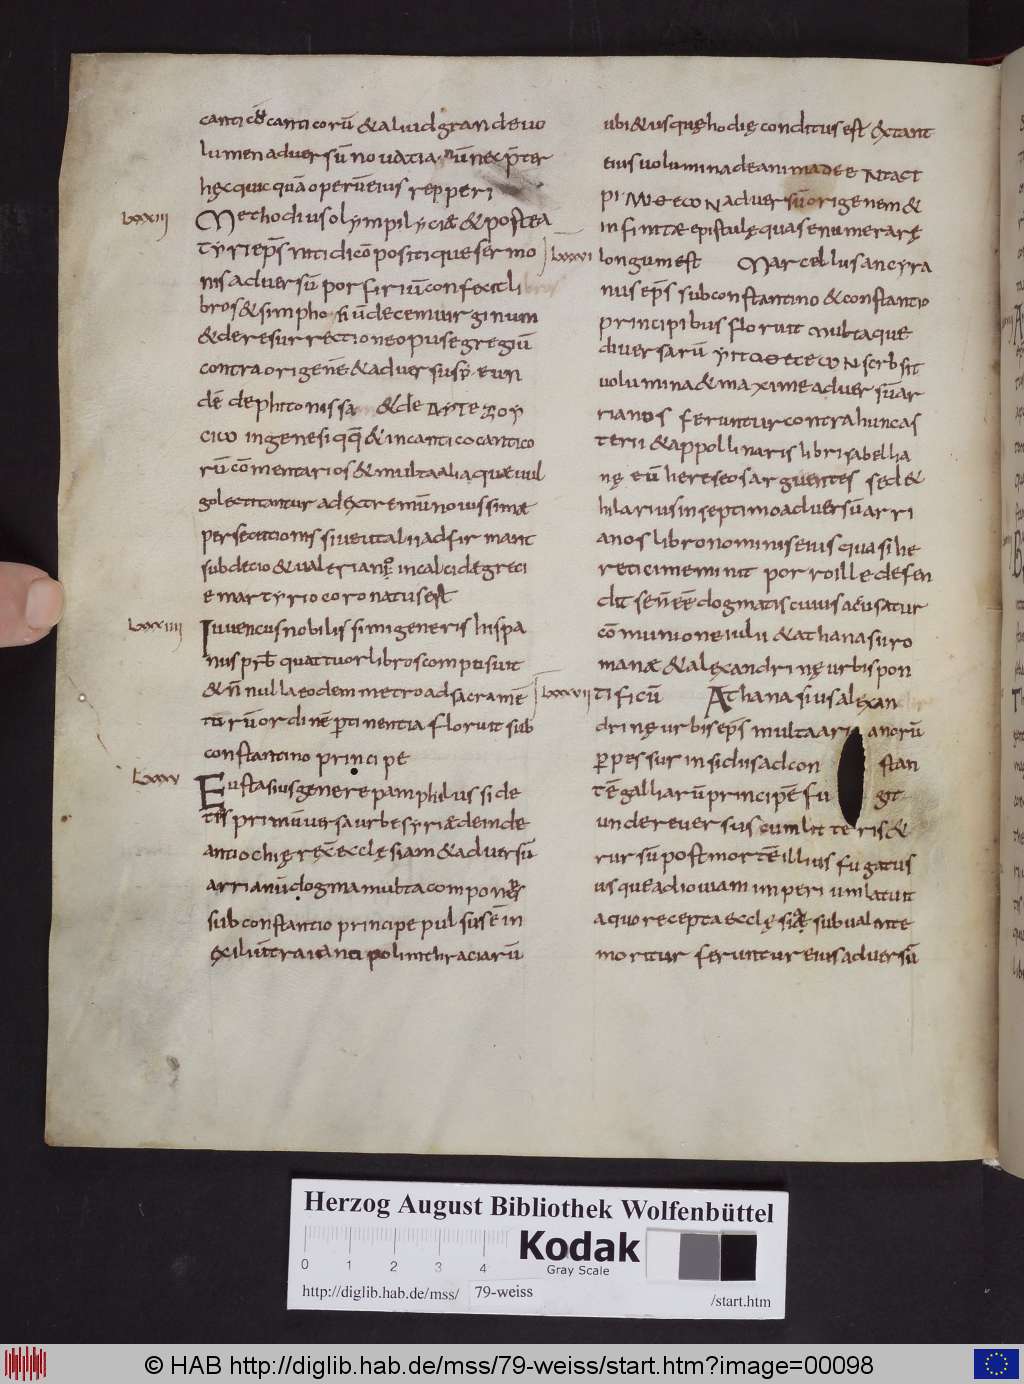 cantico canticorū & aliud grande uo
lumen aduersū nouatianū nec p̄ter
hęc quicquā operū eius repperi
lxxxiii
Methodius olympi lyciæ & postea
tyri ep̄s nitidi cōpositique sermo
nis aduersū porfiriū confecit li
bros & simphosiū decem uirginum
& de resurrectione opus egregiū
contra origenē & aduersus eun
dē de phitonissa & de ΑΥΤΕΞΟΥ
CIω in genesi qq̄ & in cantico cantico
rū cōmentarios & multa alia quæ uul
go lectitantur ad extremū nouissimæ
persecutionis siue ut alii adfirmant
sub decio & ualeriano in calcide greci
e martyrio coronatus est
lxxxiiii
Iuuencus nobilissimi generis hispa
nus prb̄ quattuor libros composuit
& n̄nulla eodem metro ad sacramē
torū ordinē ptinentia floruit sub
constantino principe
lxxxv
Eustasius genere pamphilus side
tes primū uersa urbe syriæ deinde
antiochię rex̄ ecclęsiam & aduersū
arrianū dogma multa componens
sub constantio principe pulsus ē in
exiliū traianopolim thraciarū
ubi & usque hodię conditus est extant
eius uolumina de anima de eΝΓaCT
PIΜΥΘω aduersū origenem &
infinitæ epistulę quas enumerarę
longum est
lxxxvi
Marcellus ancyra
nus ep̄s sub constantino & constantio
principibus floruit multaque
diuersarū ΥΠΟΘΕCΕωΝ scribsit
uolumina & maxime aduersū ar
rianos feruntur contra hunc as
terii & appollinaris libri sabellia
nę eū hereseos arguentes sed &
hilarius in septimo aduersū arri
anos libro nominis eius quasi he
retici meminit porro ille defen
dit se n̄ eē dogmatis cuius accusatur
cōmunione iulii & athanasii ro
manæ & alęxandrinę urbis pon
tificū
lxxxvii
Athanasius alęxan
drinę urbis ep̄s multa arrianorū
ppessur insidiis ad constan
tē galliarū principē fugit
unde reuersus cum litteris &
rursū post mortē illius fugatus
usque ad iouiani imperium latuit
a quo recepta ecclęsia sub ualente
moritur feruntur eius aduersū
Herzog August Bibliothek Wolfenbüttel
0 1 2 3 4
Kodak
Gray Scale
http://diglib.hab.de/mss/ 79-weiss /start.htm
© HAB http://diglib.hab.de/mss/79-weiss/start.htm?image=00098